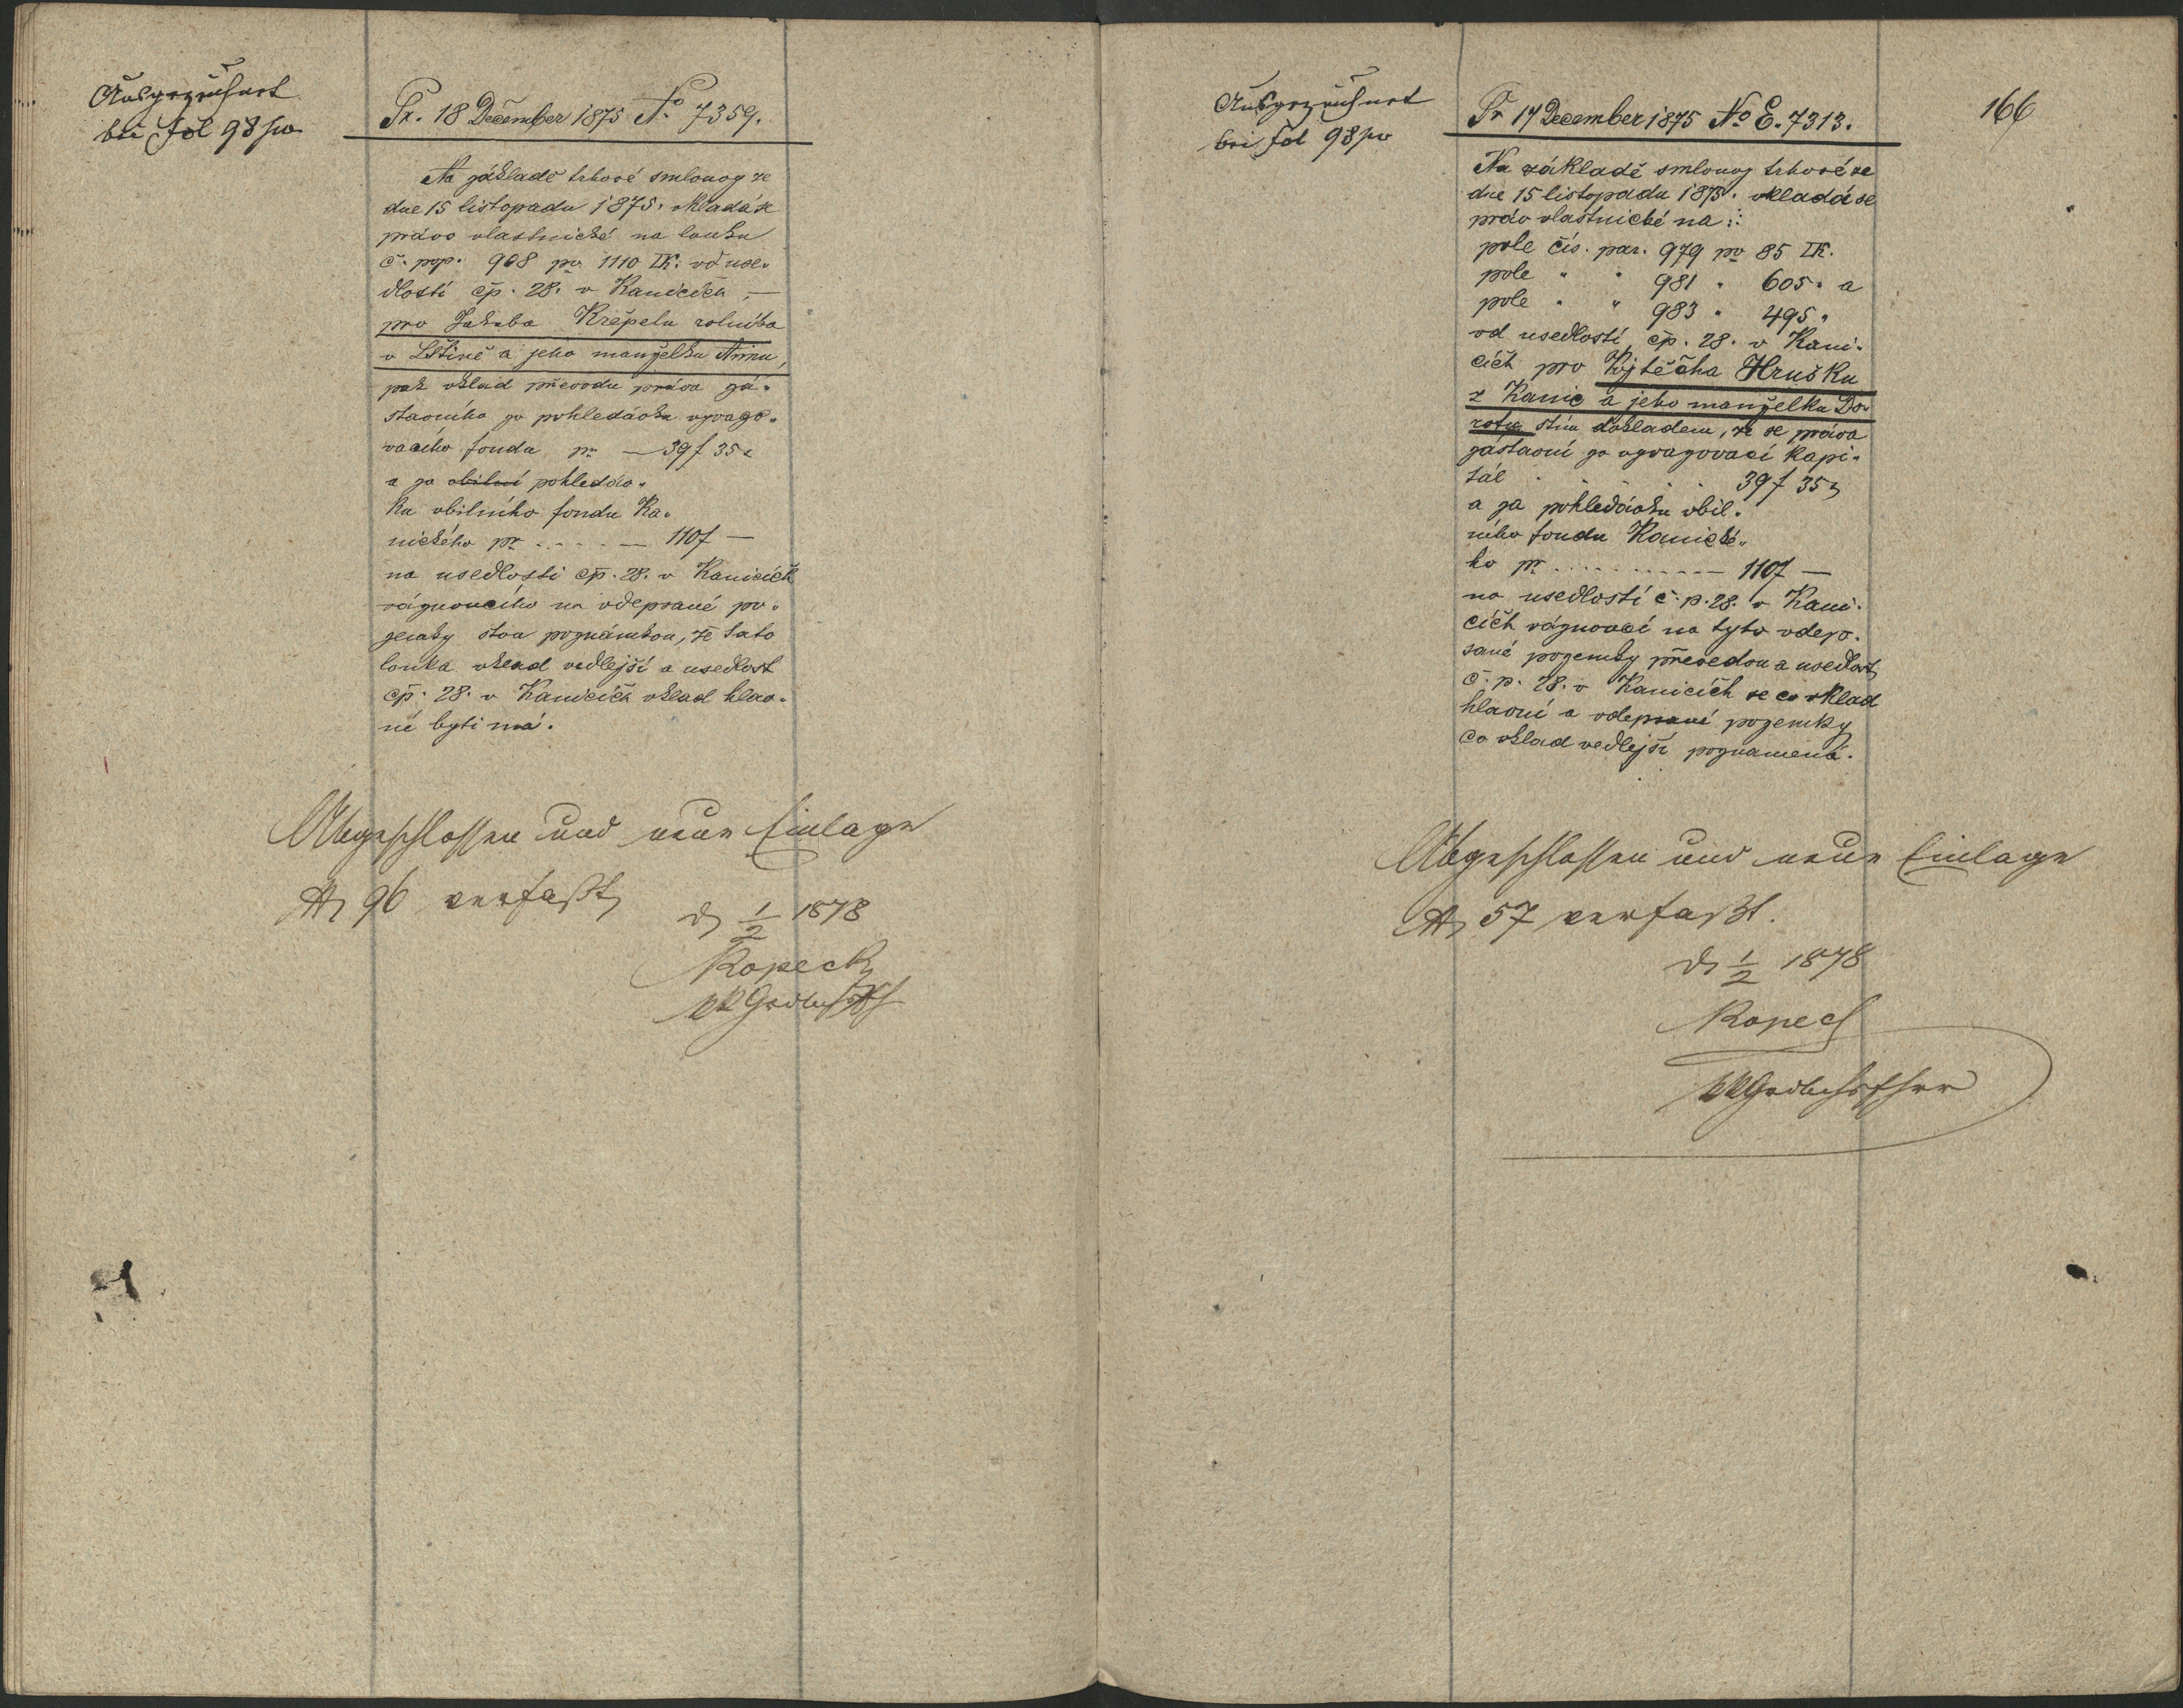 Ausgezeichnet
bei Fol 98 po
Pr. 18 December 1875 No 7359.
Na základě trhové smlouvy ze
dne 15 listopadu 1875. vkládá se
právo vlastnické na louku
č. pop. 908 po 1110 □K: od use-
dlosti čp. 28. v Kanicích, —
pro Jakuba Křepela rolníka
v Lštině a jeho manželku Annu,
pak vklad převodu práva zá-
stavního za pohledávku vyvazo-
vacího fondu pr — 39 f 35 x
a za obilní pohledáv-
ku obilního fondu Ka-
nického pr . . . . — 110 f —
na usedlosti čp. 28. v Kanicích
váznoucího na odepsané po-
zemky s tou poznámkou, že tato
louka vklad vedlejší a usedlost
čp. 28. v Kanicích vklad hlav-
ní býti má.
Abgeschlossen und neue Einlage
No 96 verfaßt
d 1/2 1878
Kopecky
Ausgezeichnet
bei Fol 98 po
166
Pr 17 December 1875 No E. 7313.
Na základě smlouvy trhové ze
dne 15 listopadu 1875. vkládá se
právo vlastnické na :
pole čís. par. 979 po 85 □K.
pole " " 981 " 605 " a
pole " " 983 " 495 "
od usedlosti čp. 28. v Kani-
cích pro Vojtěcha Hrušku
z Kanic a jeho manželku Do-
rotu s tím dokladem, že se práva
zástavní za vyvazovací kapi-
tál . . . . 39 f 35 x
a za pohledávku obil-
ního fondu Kanické-
ho pr . . . . . . — 110 f —
na usedlosti č. p. 28. v Kani-
cích váznoucí na tyto odep-
sané pozemky převedou a usedlost
č. p. 28. v Kanicích se co vklad
hlavní a odepsané pozemky
co vklad vedlejší poznamená.
Abgeschlossen und neue Einlage
No 57 verfaßt.
d 1/2 1878
Kopecky